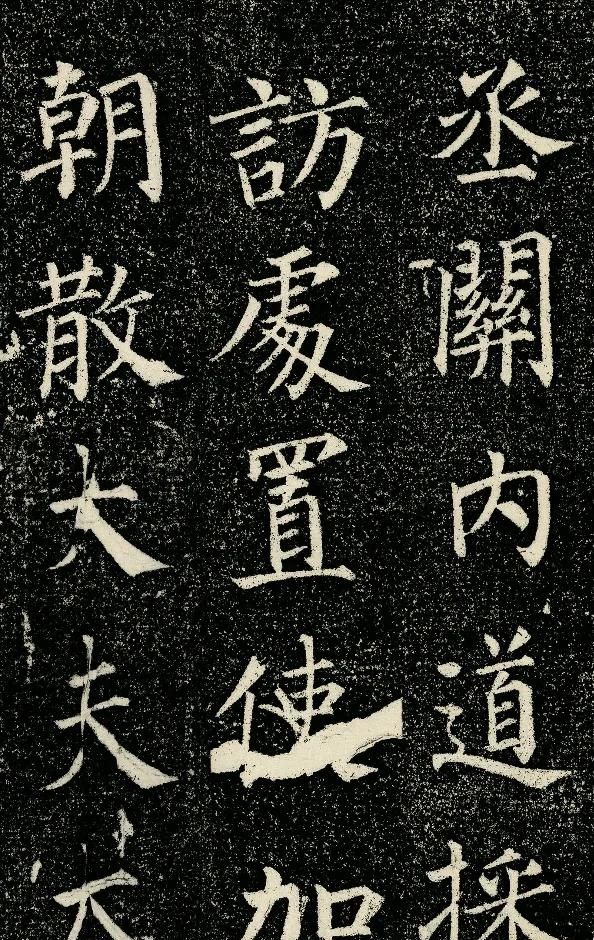 丞關內道採
訪處置使加
朝散大夫